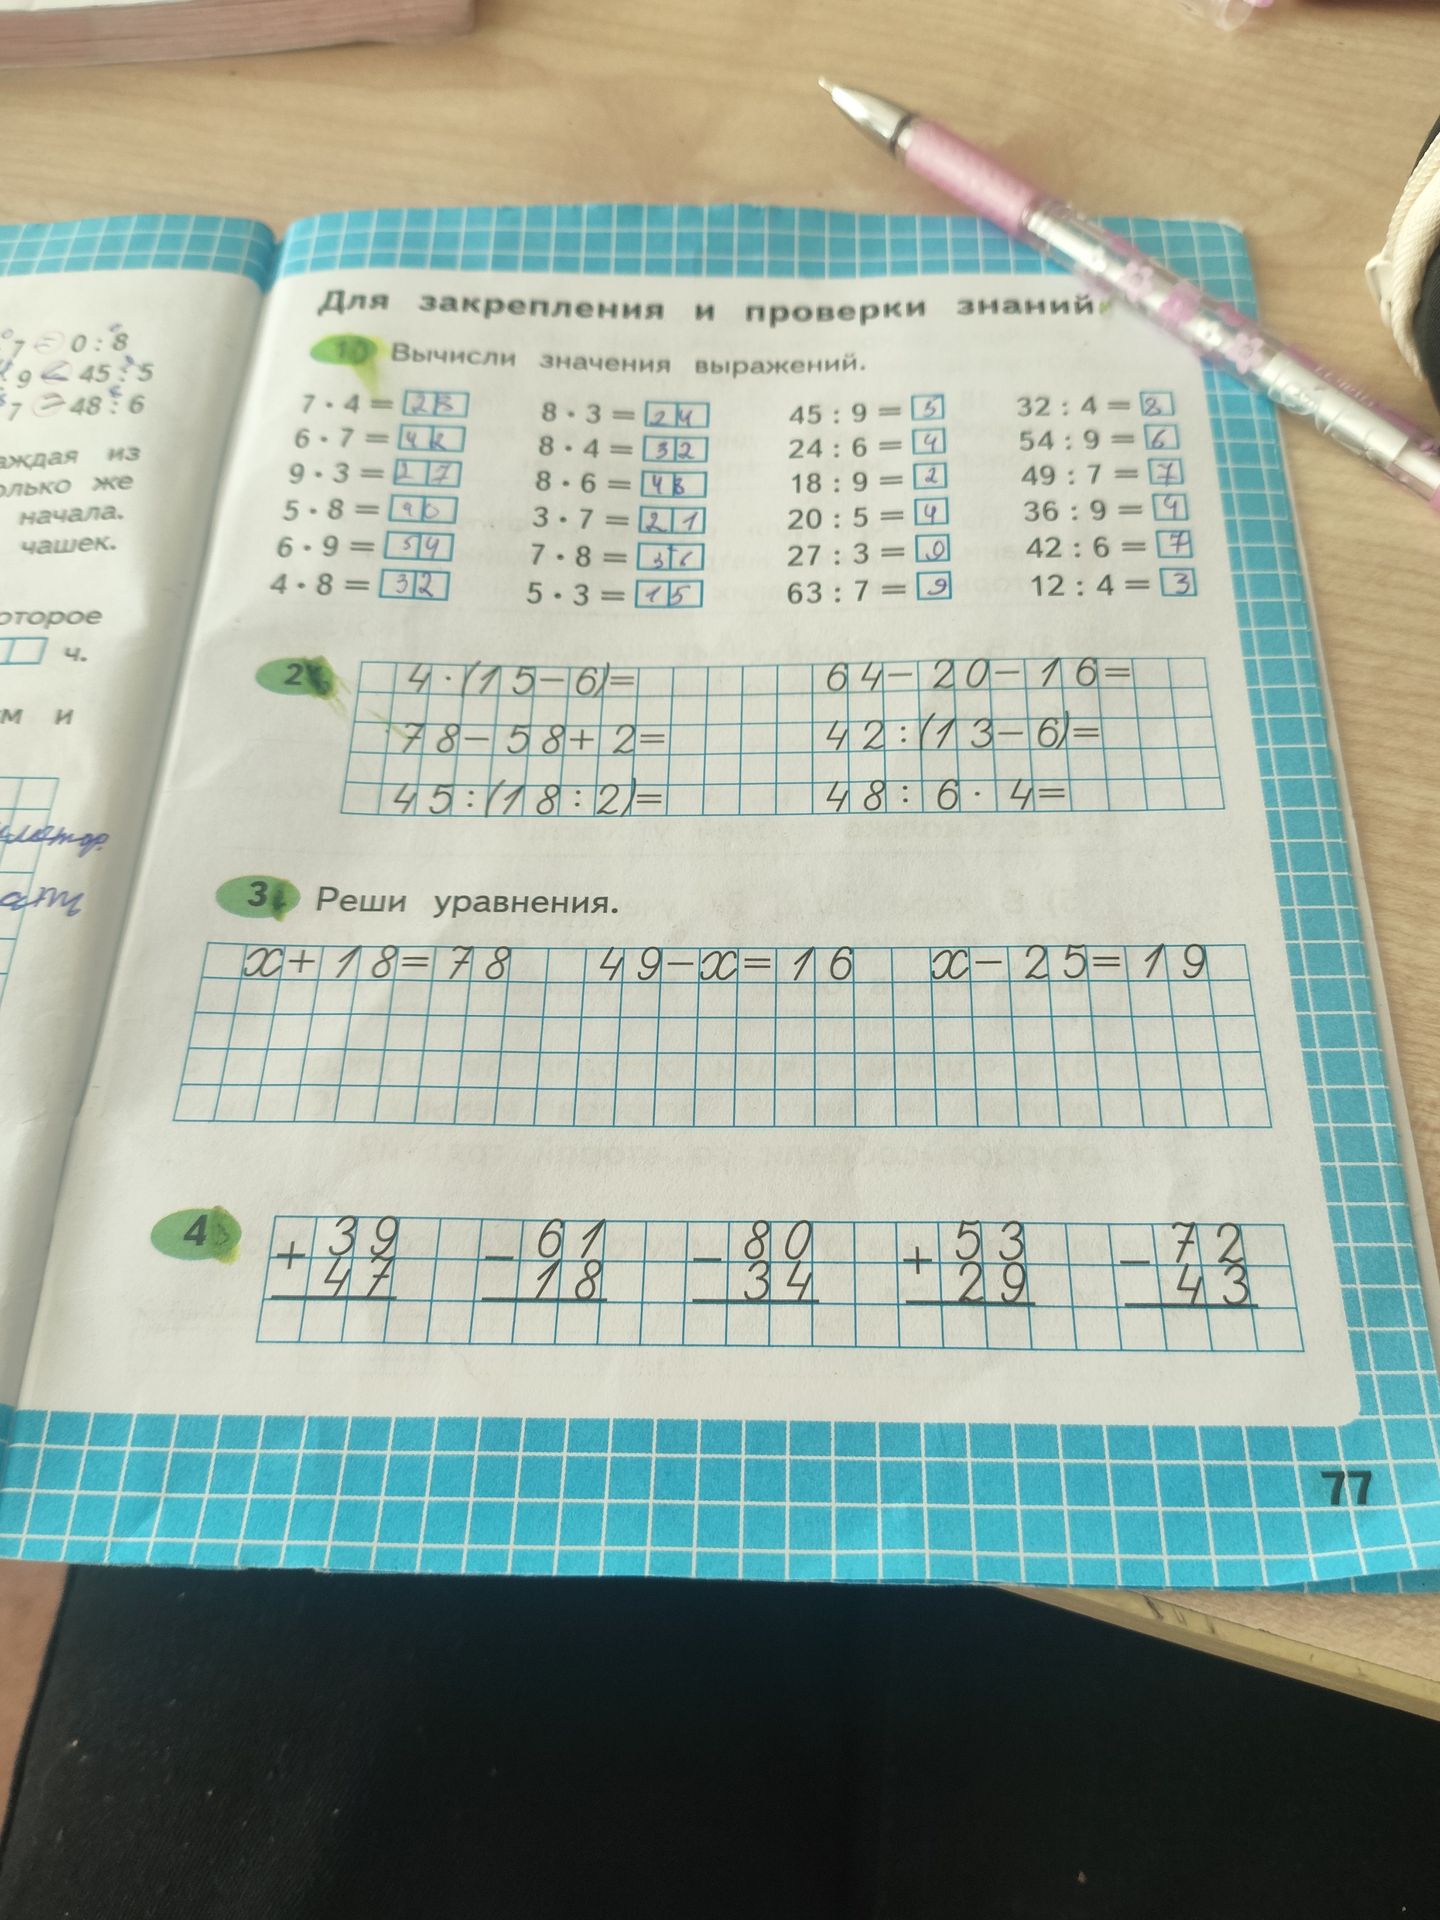 7 = 0 : 8
9 < 45 : 5
7 = 48 : 6
из
же
начала.
чашек.
ч.
м и
Для закрепления и проверки знаний
1 Вычисли значения выражений.
7 · 4 = 28 8 · 3 = 24 45 : 9 = 5 32 : 4 = 8
6 · 7 = 42 8 · 4 = 32 24 : 6 = 4 54 : 9 = 6
9 · 3 = 27 8 · 6 = 48 18 : 9 = 2 49 : 7 = 7
5 · 8 = 40 3 · 7 = 21 20 : 5 = 4 36 : 9 = 4
6 · 9 = 54 7 · 8 = 27 : 3 = 42 : 6 = 7
4 · 8 = 32 5 · 3 = 15 63 : 7 = 9 12 : 4 = 3
2 4 · (15 − 6) = 64 − 20 − 16 =
78 − 58 + 2 = 42 : (13 − 6) =
45 : (18 : 2) = 48 : 6 · 4 =
3 Реши уравнения.
x + 18 = 78 49 − x = 16 x − 25 = 19
4 + 39 − 61 − 80 + 53 − 72
47 18 34 29 43
77